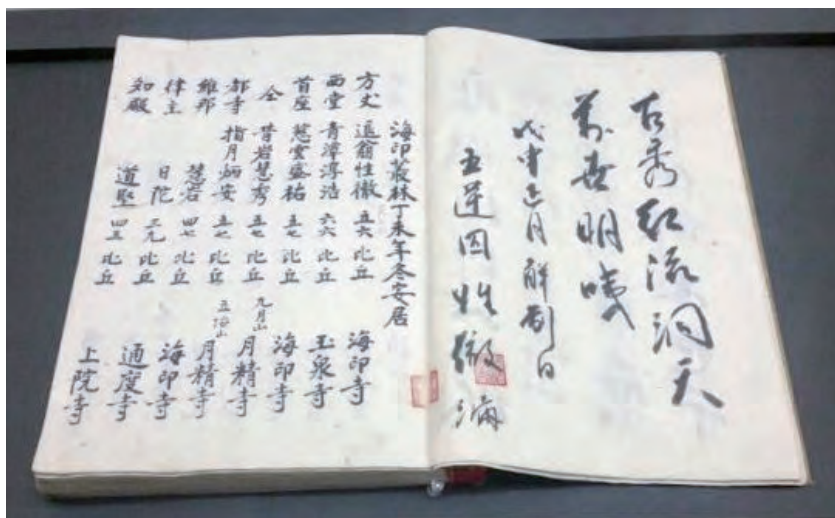 古秀紅流洞天
萬世明
戊申正月解制日
五逆囚性徹
海印叢林丁未年冬安居
方丈 退翁性徹 五六 比丘 海印寺
西堂 青潭淳浩 六六 比丘 玉泉寺
首座 慈雲盛祐 五七 比丘 海印寺
仝 昔岩慧秀 五七 比丘 九月山 月精寺
都寺 指月炳安 五七 比丘 五台山 月精寺
維那 慧岩 四七 比丘 海印寺
律主 日陀 三九 比丘 通度寺
知殿 道堅 四三 比丘 上院寺